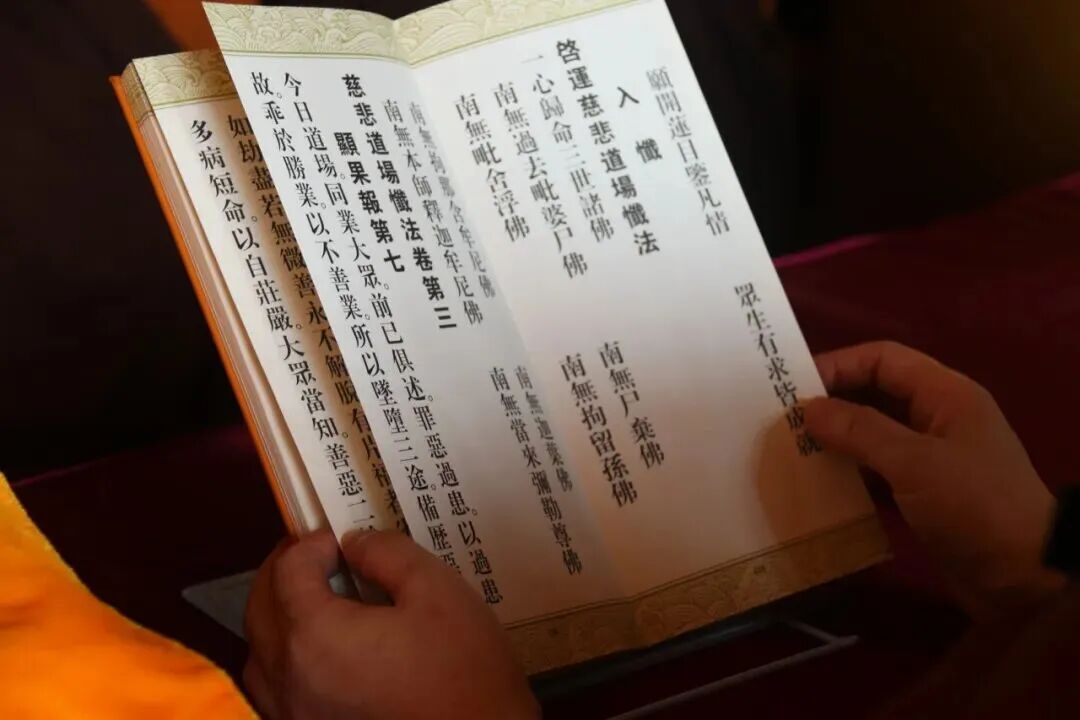 願開蓮目鑒凡情　眾生有求皆成就
入懺
啓運慈悲道場懺法
一心歸命三世諸佛
南無過去毗婆尸佛　南無尸棄佛
南無毗舍浮佛　南無拘留孫佛
南無拘那含牟尼佛　南無迦葉佛
南無本師釋迦牟尼佛　南無當來彌勒尊佛
慈悲道場懺法卷第三
顯果報第七
今日道場。同業大眾。前已俱述。罪惡過患。以過患
故。乖於勝業。以不善業。所以墜墮三途。備歷惡
如劫盡若無微善永不解脫有片福者
多病短命。以自莊嚴。大眾當知。善惡二